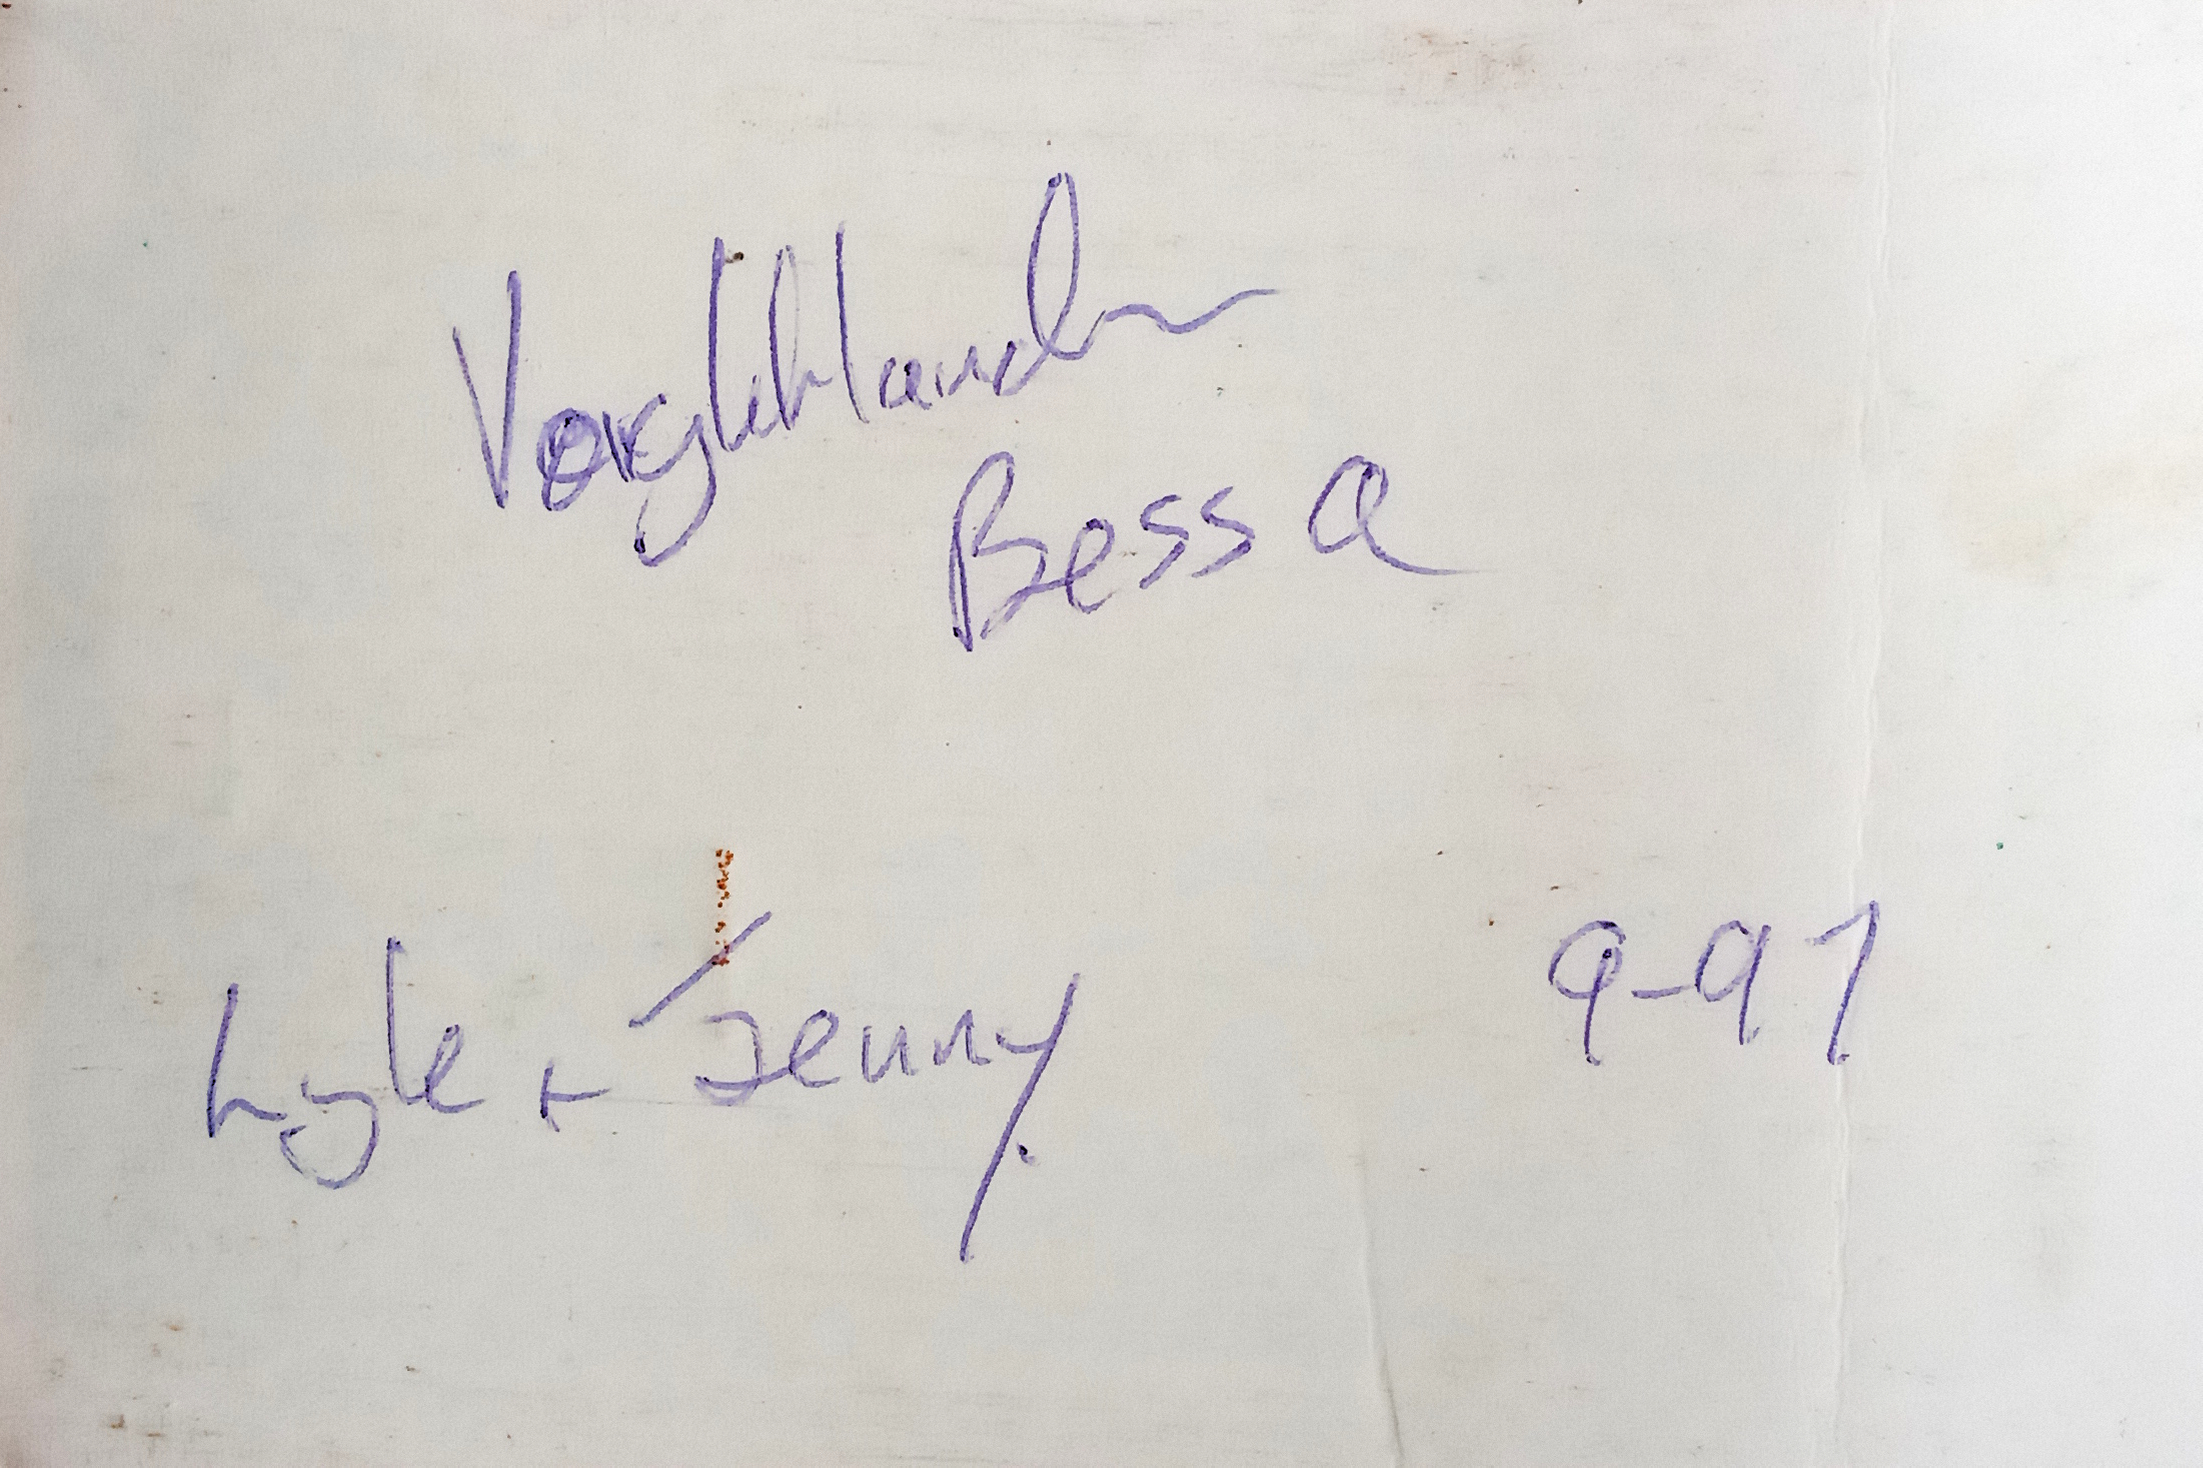 Vorghtlander
Bessa
Lyle + Jenny 9-97